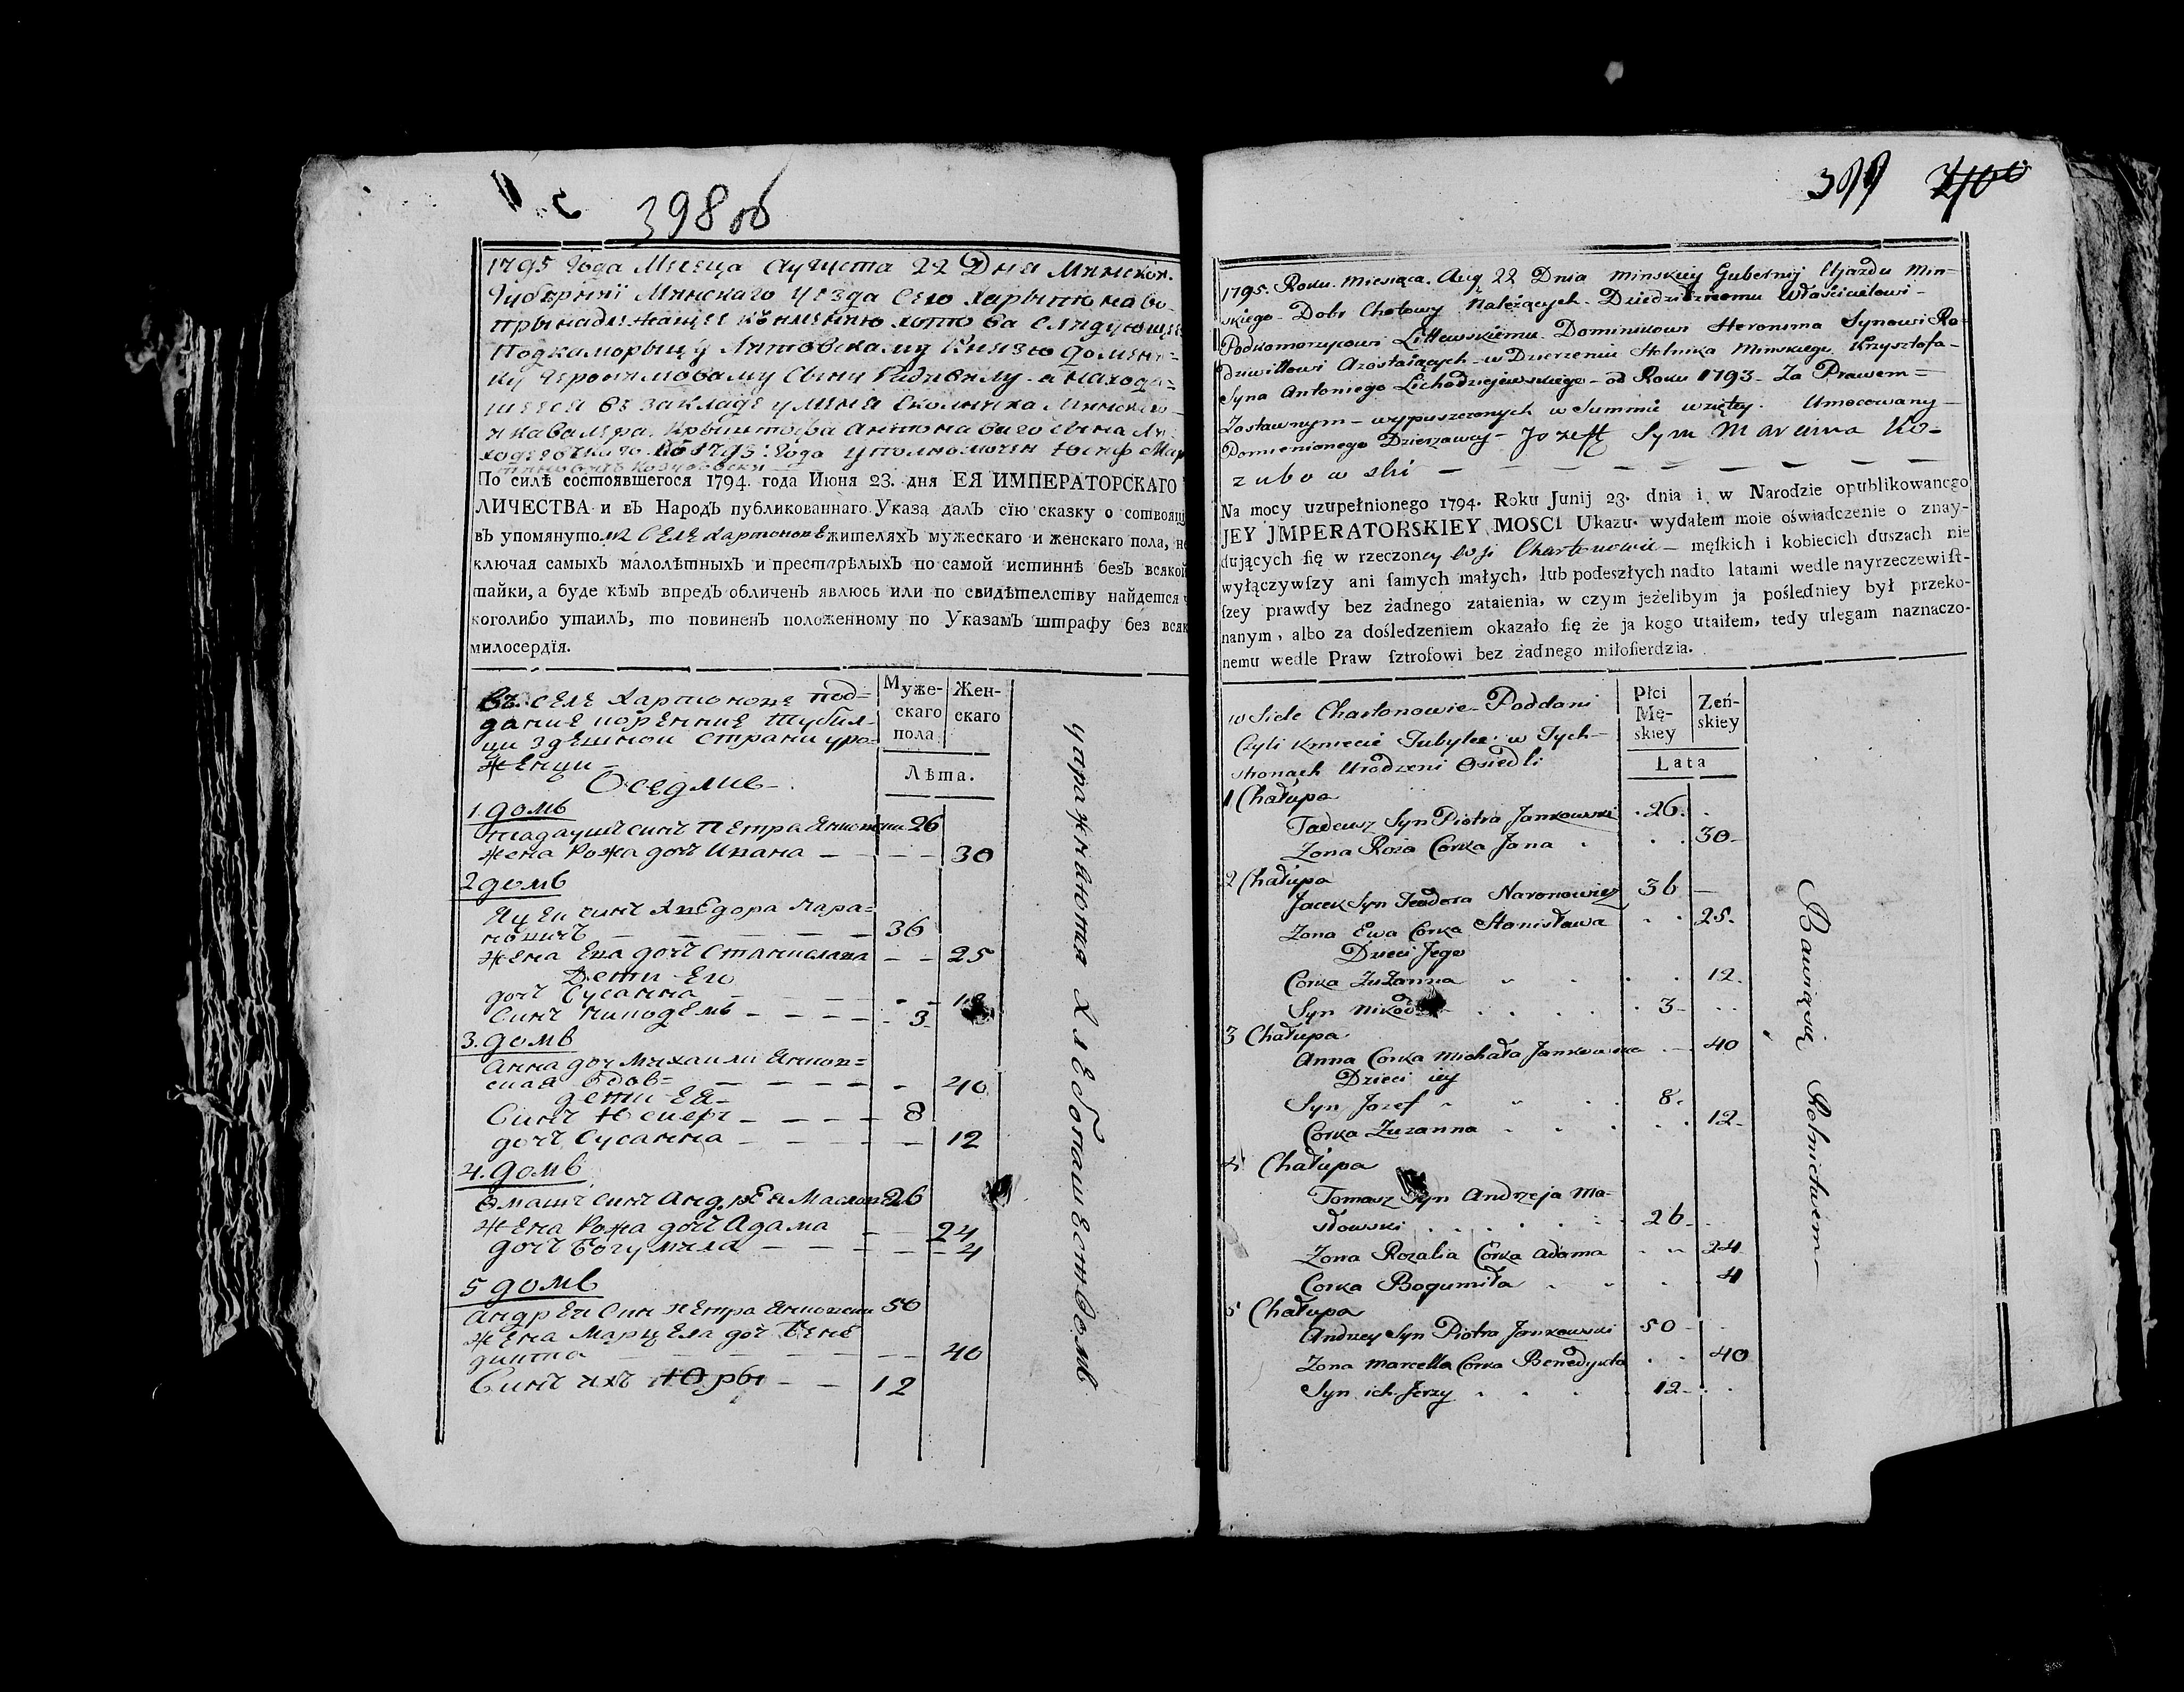 398 об
1795 года Месеца Августа 22 Дня Минской
Губернии Минскаго уезда Село
принадлежащее къ имению
Подкоморыцу Литовскому Князю Домини=
ку Геронимовому Сыну Радивилу а находя=
щееся въ закладе у меня Столника Минскаго
и Кавалера Крыштофа Антонавого сына Ли
1793 года уполномочен Юсиф Мар
По силѣ состоявшегося 1794. года Июня 23. дня ЕЯ ИМПЕРАТОРСКАГО
ЛИЧЕСТВА и вЪ НародЪ публикованнаго Указа далЪ сїю сказку о
вЪ упомянутомъ Селе Хартонове жителяхЪ мужескаго и женскаго пола, не
ключая самыхЪ малолѣтныхЪ и престарѣлыхЪ по самой истиннѣ безЪ всякой
тайки, а буде кѣмЪ впредЪ обличенЪ явлюсь или по свидѣтелству найдется
коголибо утаилЪ, то повиненЪ положенному по УказамЪ штрафу без всяк
милосердїя.
въ селе Хартонове под=
даные коренние тубил=
ци здешной страни уро=
женци
Оседлие
Муже-
скаго
пола.
Жен-
скаго
Лѣта.
1. домъ
Тадаушъ синъ Петра Янковски 26
жена Рожа дочъ Ивана — — — 30
2 домъ
Яцек синъ Хведора Нара=
новичъ — — — 36
жена Ева дочъ Станислава — — 25
Дети Его
дочъ Сусанна — — 12
Синъ Никодемъ — — — 3
3. домъ
Анна доч Михаила Янков=
ская вдов= — — — 40
дети Ея
Синъ Юсиеръ — — — 8
дочъ Сусанна — — — 12
4. домъ
Омашъ синъ Андрея Масловски 26
жена Рожа дочъ Адама — — 24
дочъ Богумила — — — 4
5 домъ
Андрей Син Петра Янковски 50
жена Марцела доч Бене
дикта — — — 40
Синъ ихъ Юры — — 12
упражняются хлебопашеством
399 400
1795. Roku Miesiąca Aug 22 Dnia Minskiey Gubernij Ujazdu Min-
skiego Dobr Chotowy Należących Dziedzicznemu Właścicielowi-
Podkomorzycowi Littewskiemu Dominikowi Heronima Synowi Ra-
dziwiłłowi Azostaiących w Dzierzeniu Stolnika Minskiego Krzysztofa-
Syna Antoniego Lichodziejewskiego od Roku 1793 Za Prawem=
Zastawnym wypuszczonych w Summie wziętey. Umocowany
Pomienionego Dzierzawcy Jozeff Syn Marcina Ko-
zubowski — — — — —
Na mocy uzupełnionego 1794. Roku Junij 23. dnia i w Narodzie opublikowanego
JEY JMPERATORSKIEY MOSCI Ukazu. wydałem moie oświadczenie o znay-
dujących ſię w rzeczoney wsi Chartonowie — męſkich i kobiecich duszach nie
wyłączywſzy ani ſamych małych, lub podeszłych nadto latami wedle nayrzeczewiſt-
ſzey prawdy bez żadnego zataienia, w czym jeżelibym ja poſledniey był przeko-
nanym, albo za doſledzeniem okazało ſię że ja kogo utaiłem, tedy ulegam naznaczo-
nemu wedle Praw ſztrofowi bez żadnego miłoſierdzia.
w Siele Chartonowie Poddani
Czyli Kmiecie Tubylce w Tych-
stronach Urodzeni Osiedli
Płci
Mę-
skiey
Zeń-
skiey
Lata
1 Chałupa
Tadeusz Syn Piotra Jankowski . 26.
Zona Roza Corka Jana . . . 30
2 Chałupa
Jacek Syn Teodora Naronowicz 36 —
Zona Ewa Corka Stanisława . . 25.
Dzieci Jego
Corka Zuzanna . . . 12.
Syn Nikodem . . . . 3 . .
3 Chałupa
Anna Corka Michała Jankowska . — 40
Dzieci iey
Syn Jozef . . . 8.
Corka Zuzanna . . . . 12.
4 Chałupa
Tomasz Syn Andrzeja Ma-
słowski . . . . . 26 .
Zona Rozalia Corka Adama . . 24
Corka Bogumiła . . . 4
5 Chałupa
Andrzey Syn Piotra Jankowski 50 .
Zona Marcella Corka Benedykta . . 40
Syn ich Jerzy . . . . 12 . .
Bawią się Rolnictwem